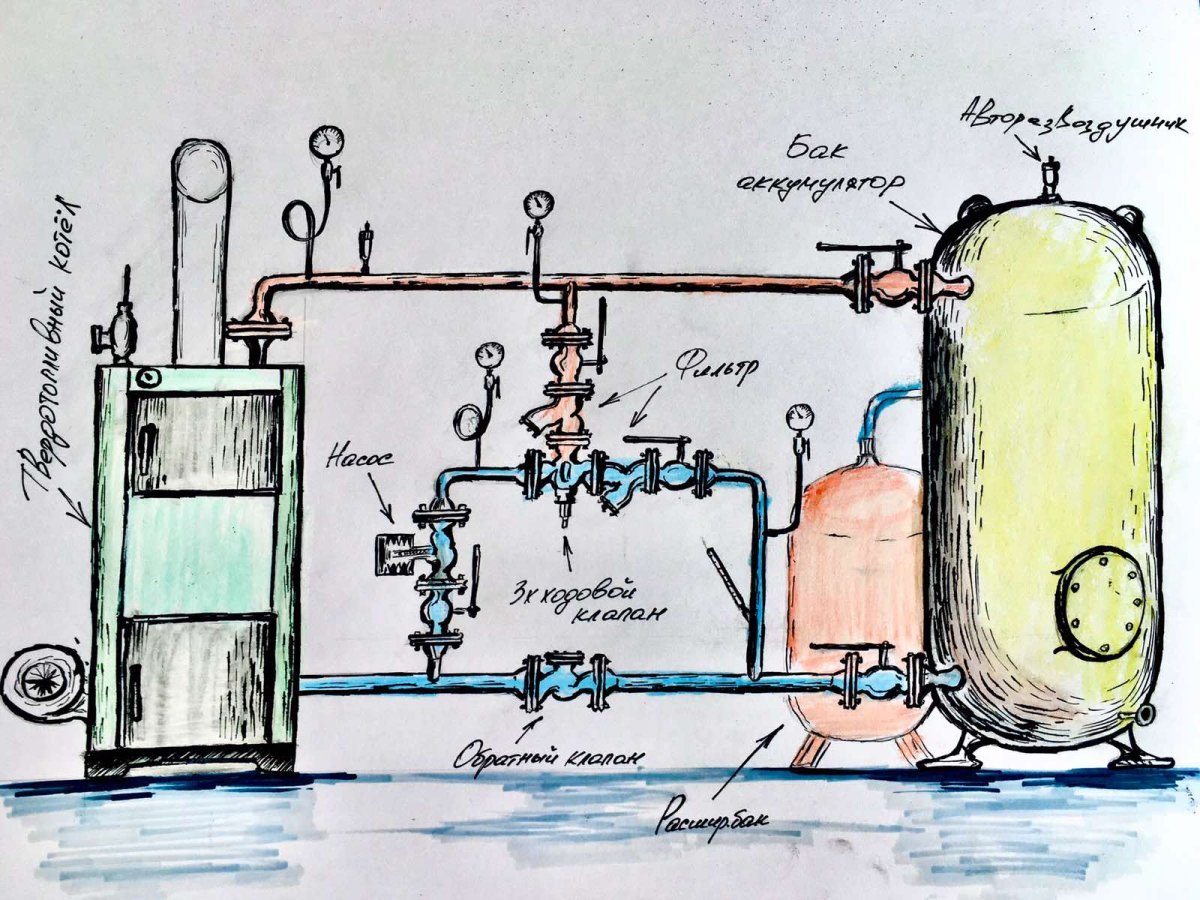 Авторазвоздушник
Бак
аккумулятор
Твердотопливный котёл
Фильтр
Насос
3х ходовой
клапан
Обратный клапан
Расшир.бак